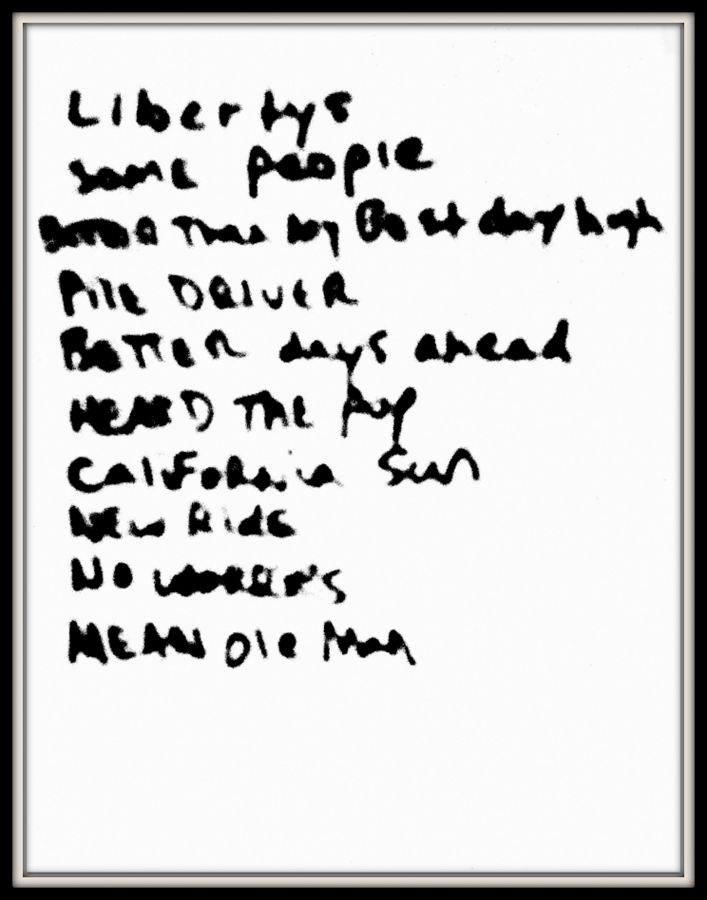 Libertys
some people
Than my Best day high
Pile DRIVER
BETTER days ahead
HEARD THE
California Sun
New Ride
NO
MEAN Ole Man